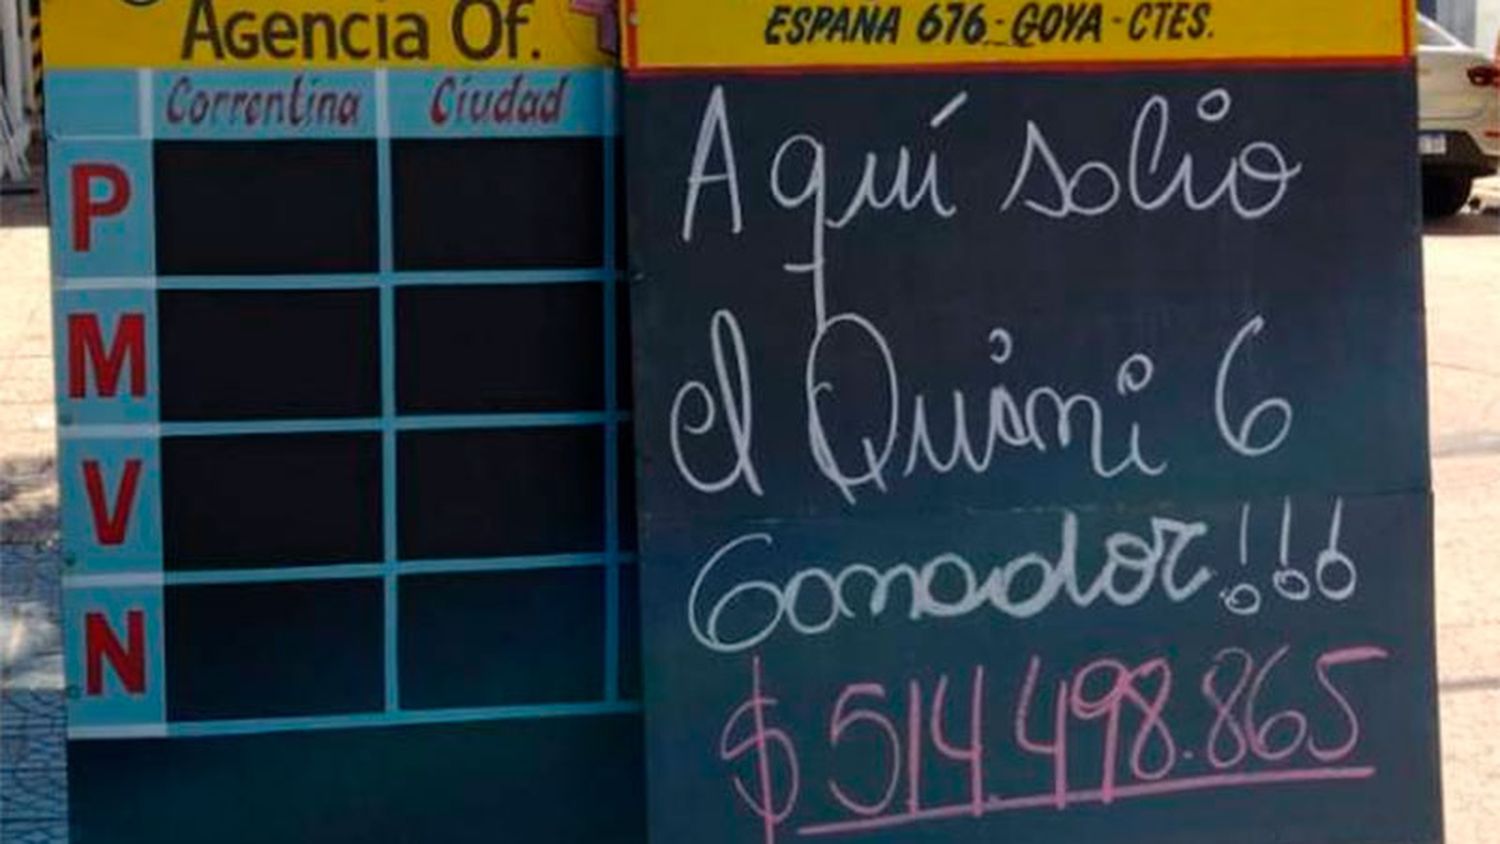 Agencia Of.
Correntina Ciudad
P
M
V
N
ESPAÑA 676 - GOYA - CTES.
Aquí salio
el Quini 6
Ganador!!!
$514.498.865